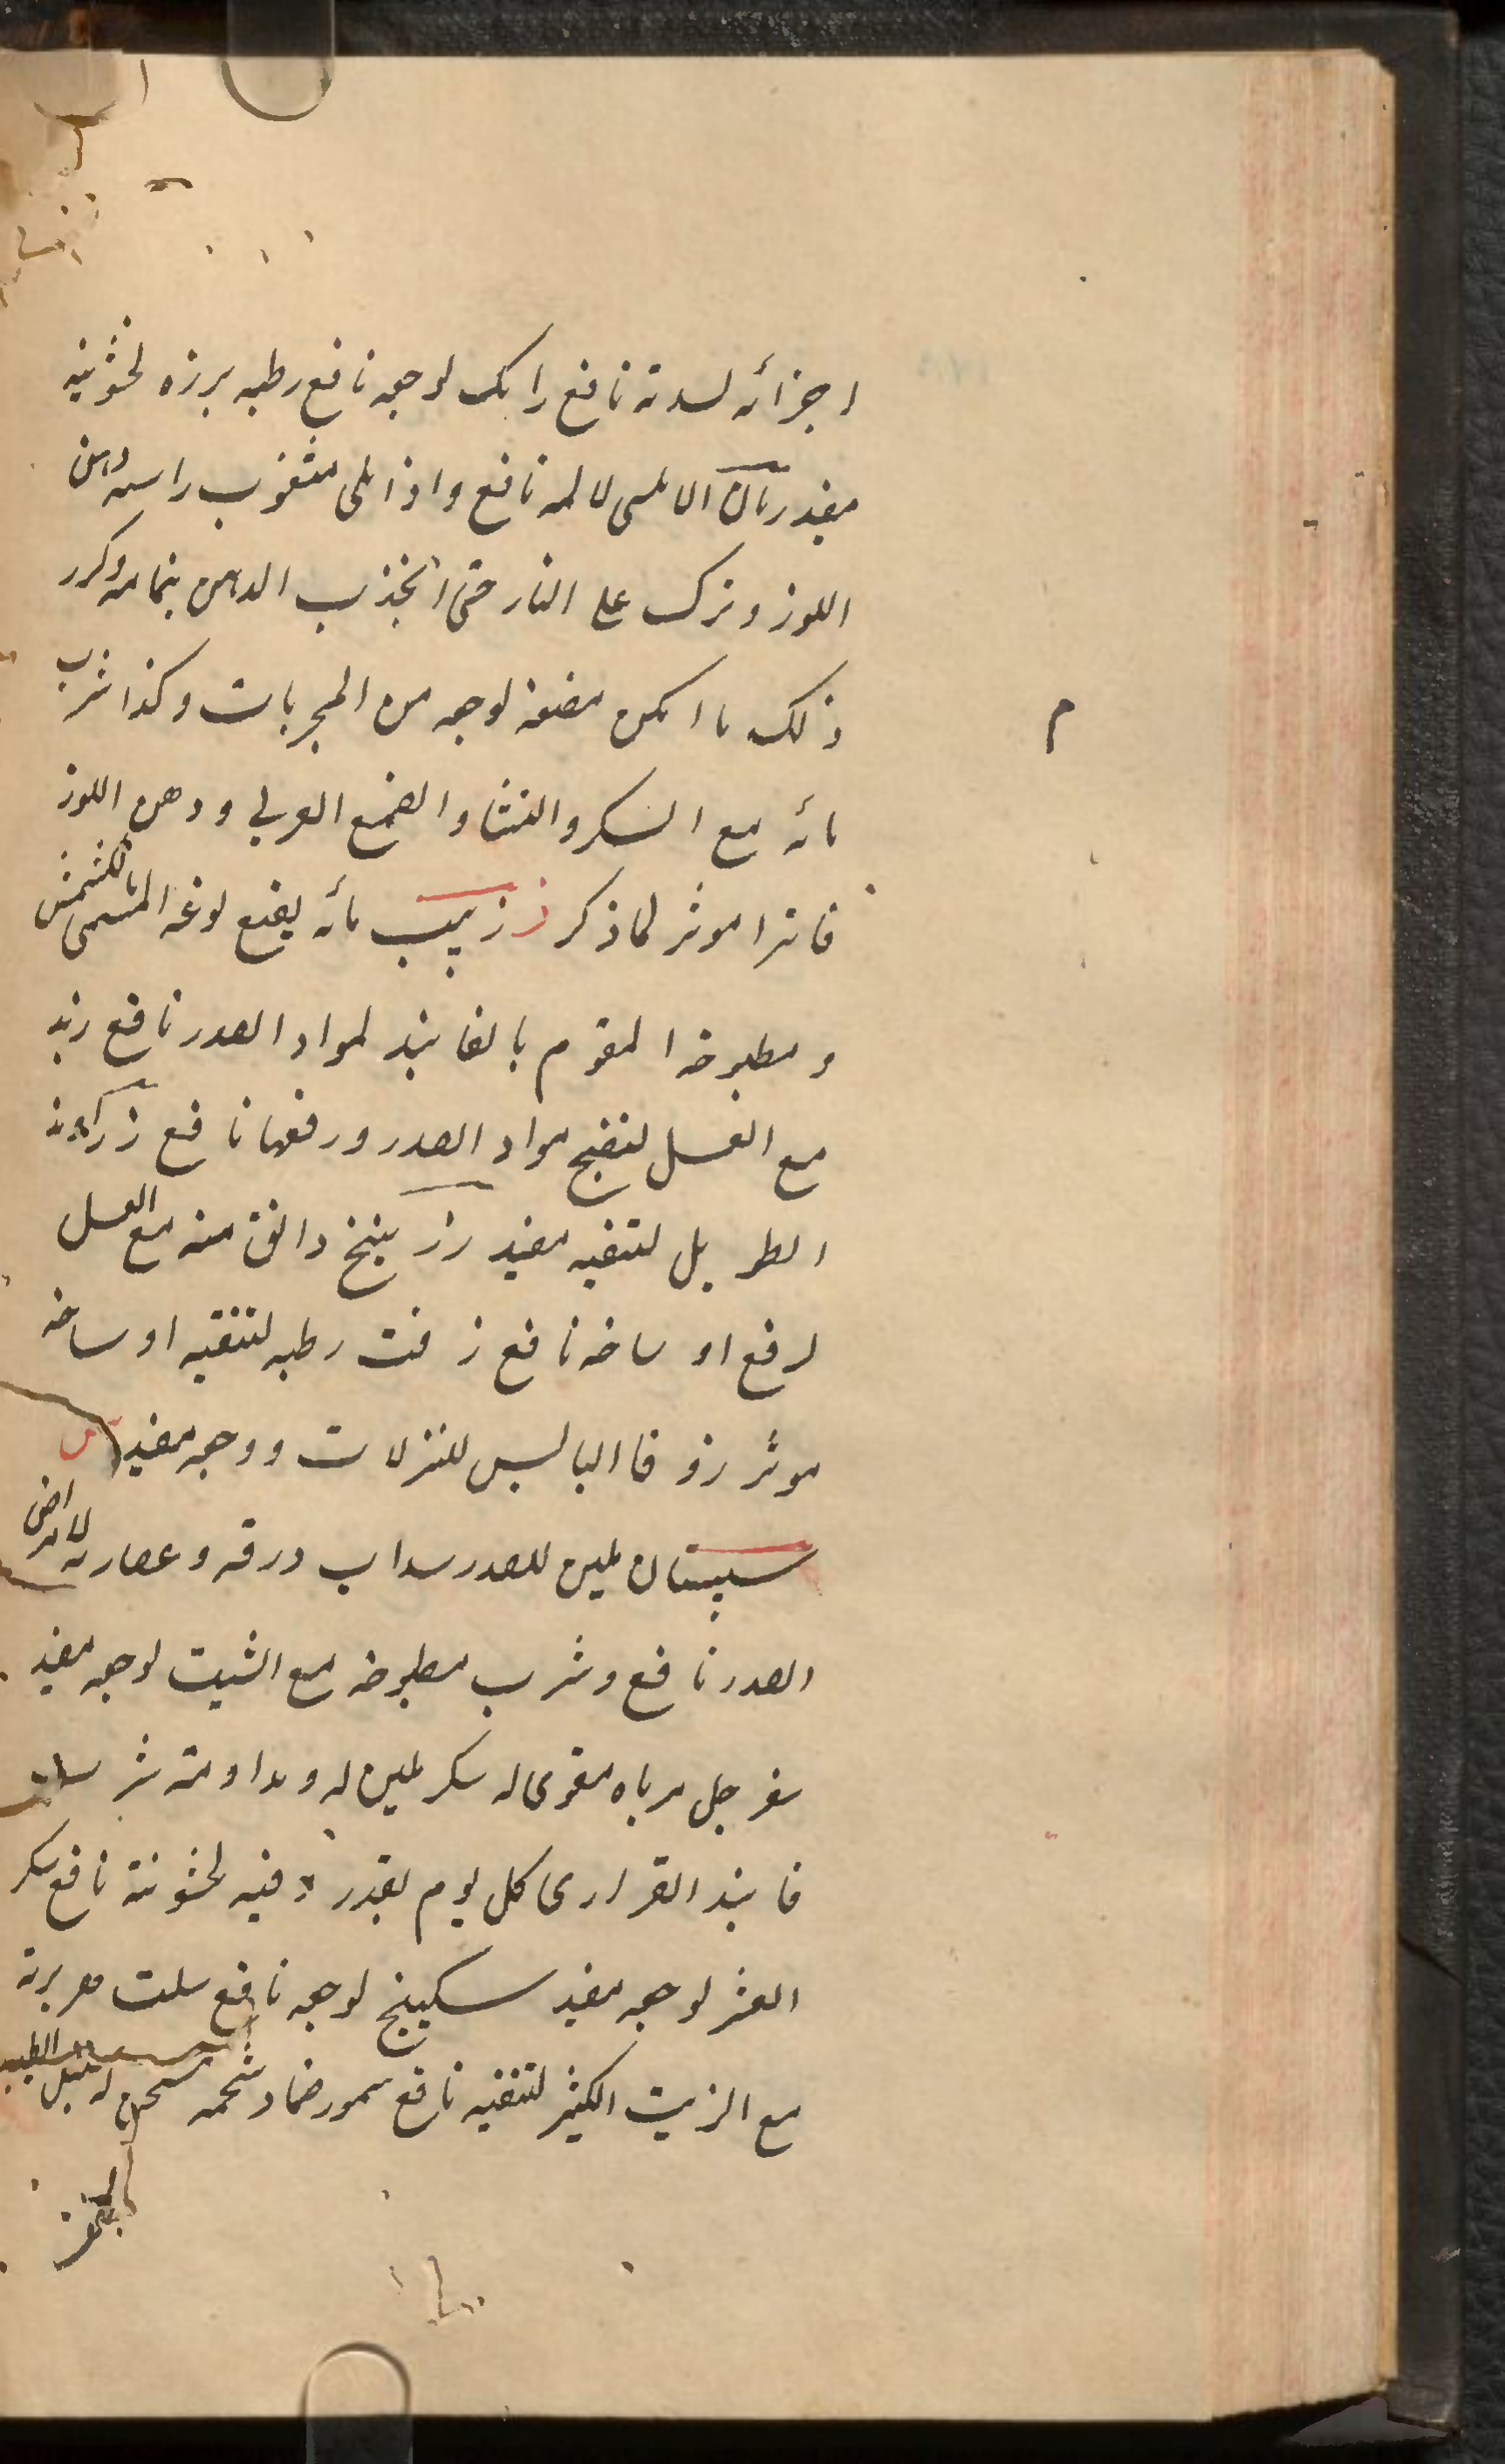 اجزائه لسدته نافع رامك لوجعه نافع رطبه بزره لخشونته
مفيد رمان الاملسى لالمه نافع واذا ملى مثقوب راسه دهن
اللوز وترك على النار حتى انجذب الدهن بتمامه وكرر
ذلك ما امكن مضغه لوجعه من المجربات وكذا شرب
م
مائه مع السكر والنشا والصمغ العربي ودهن اللوز
فاترا موثر لما ذكر ز زبيب مائه المسمى بالكشمش
ومطبوخه المقوم بالفانيذ لمواد الصدر نافع زبد
مع العسل لنضج مواد الصدر ورفعها نافع زراوند
الطويل لتنقيه مفيد زرنيخ دانق منه مع العسل
لرفع اوساخه نافع زفت رطبه لتنقيه اوساخه
موثر زوفا اليابس للنزلات ووجعه مفيد س
سپستان ملين للصدر سداب ورقه وعصارته لامراض
الصدر نافع وشرب مطبوخه مع الشبت لوجعه مفيد
سفرجل مرباه مقوى له سكر ملين له ومداومة شرب
فانيذ القرارى كل يوم بقدر وقيه لخشونته نافع سكر
العشر لوجعه مفيد سكبينج لوجعه نافع سلت
مع الزيت الكثير لتنقيه نافع سمور ضماد شحمه مسخن له سنبل الطيب